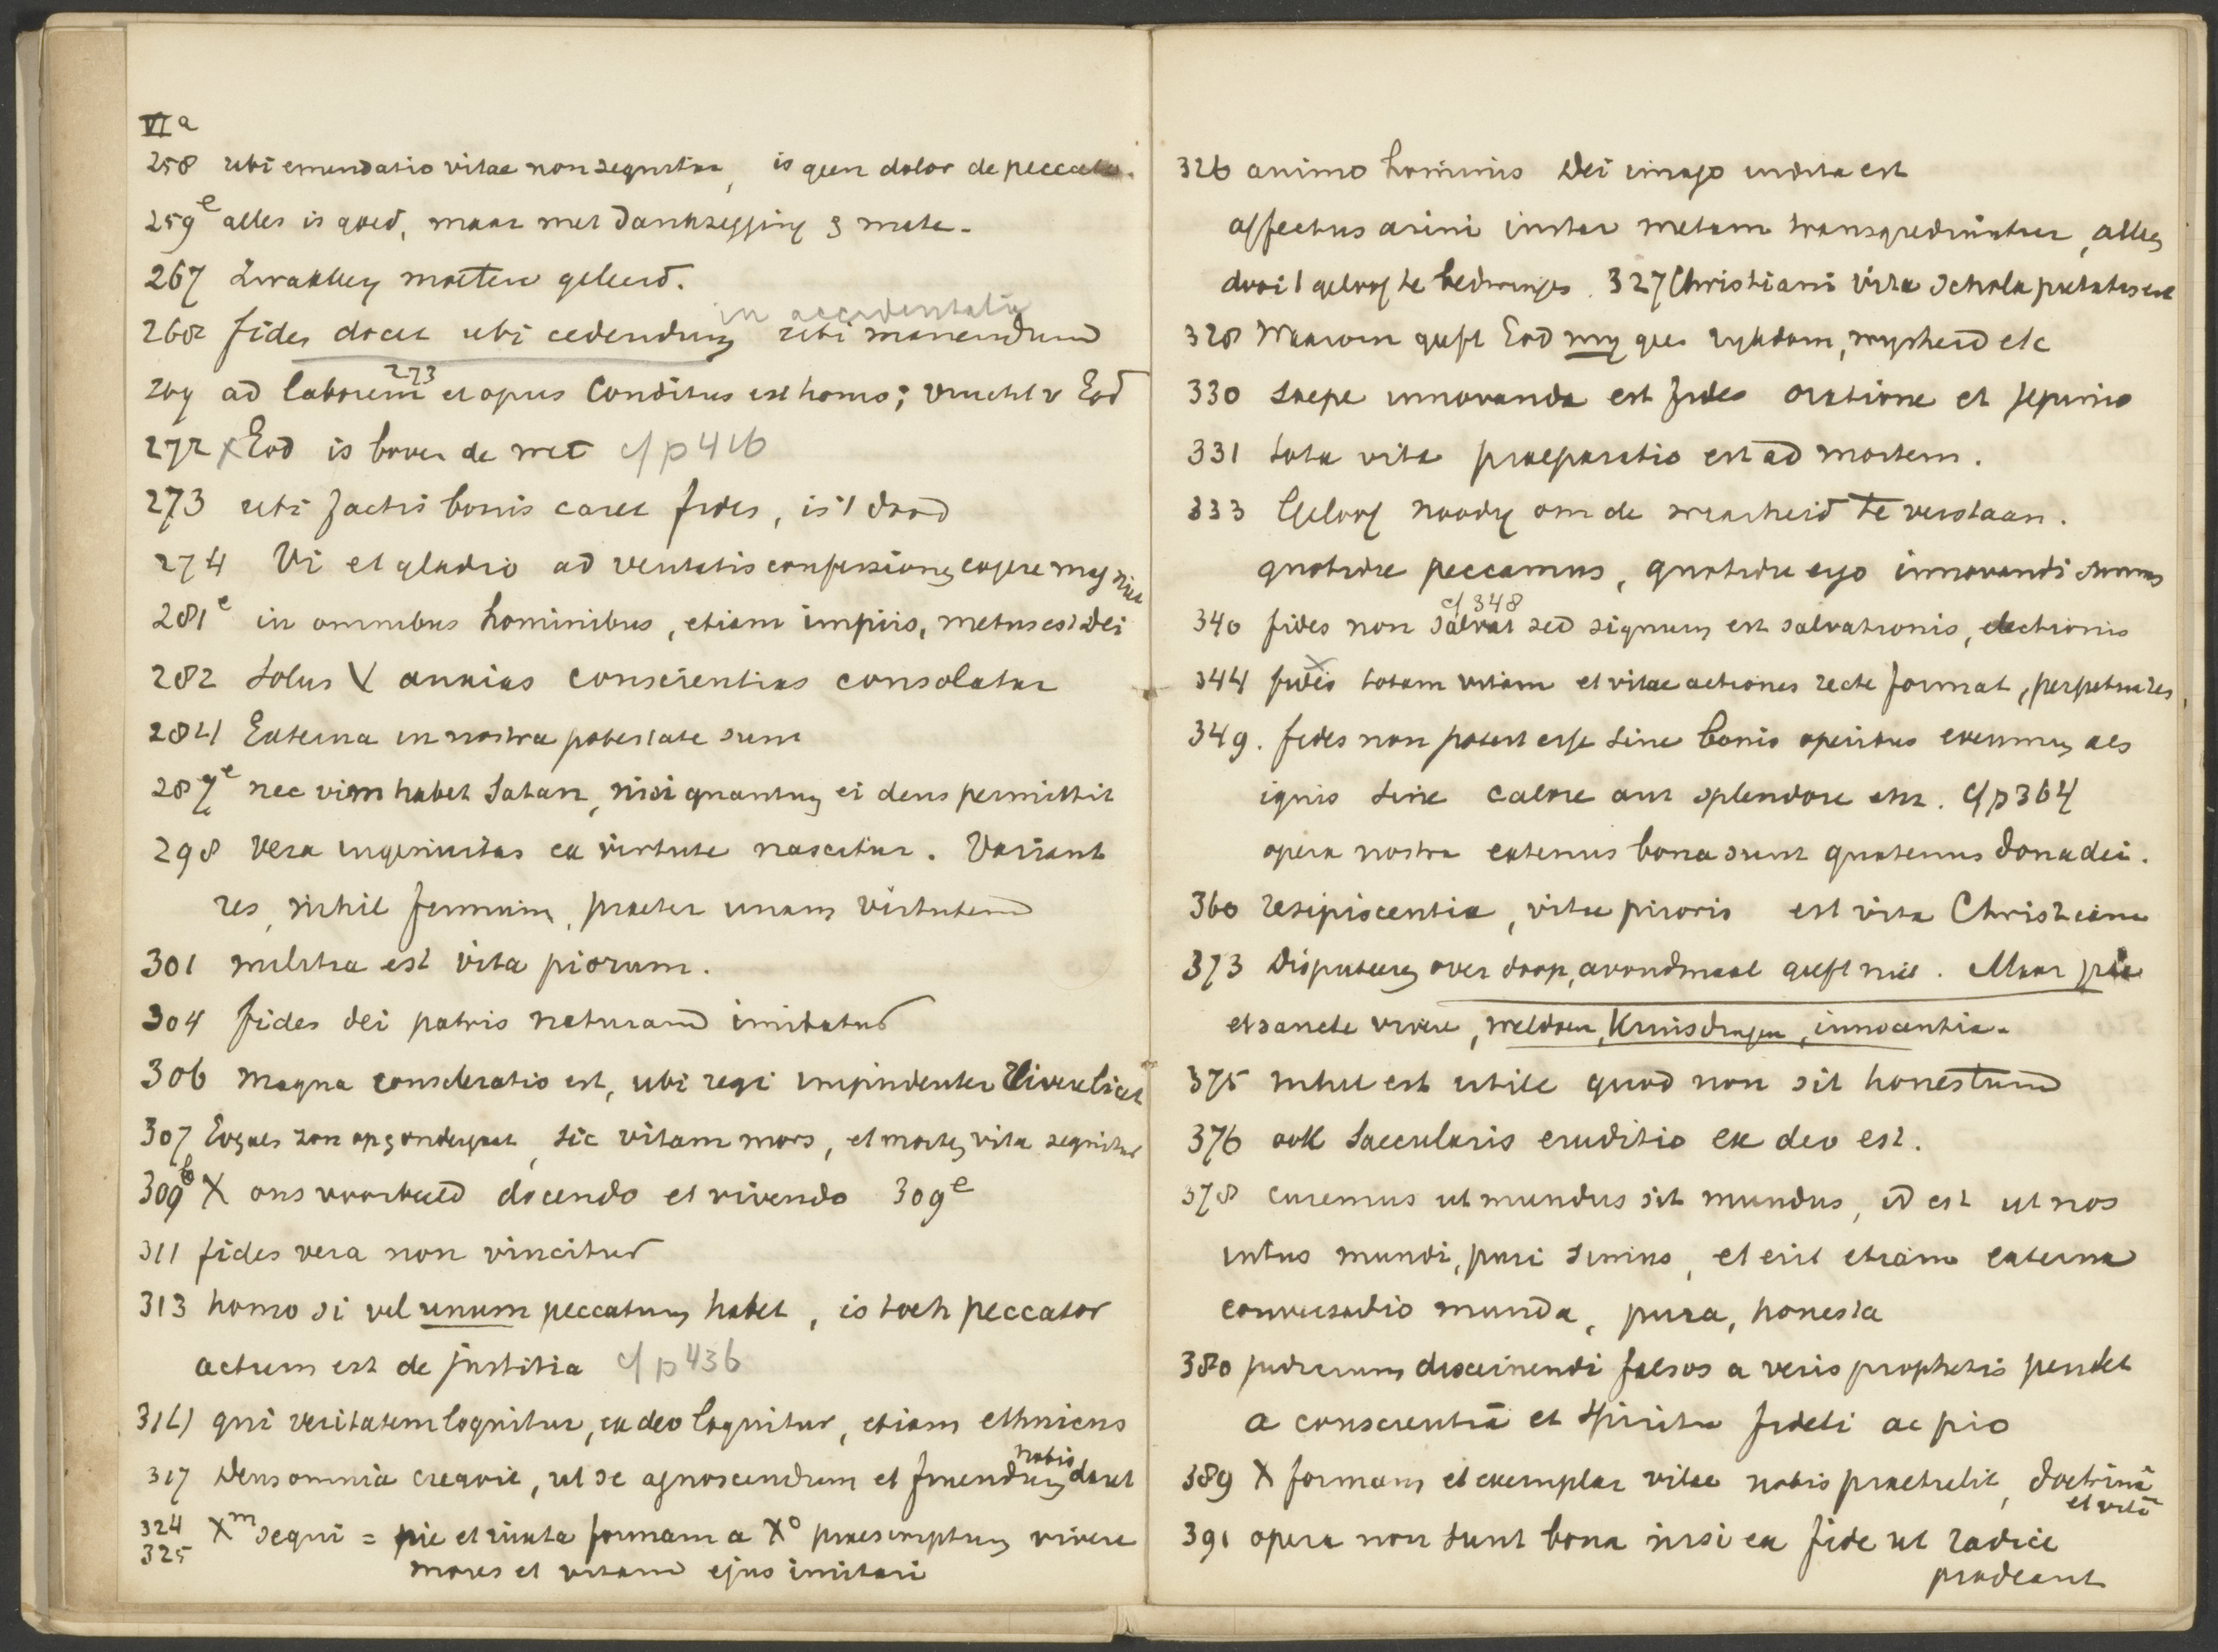 VI a
258 ubi emendatio vitae non sequitur, is geen dolor de peccatis.
259e alles is goed, maar met dankzegging & mate.
267 Zwakken moeten geleerd.
in accidentalia
268 fides docet ubi cedendum ubi manendum
269 ad laborem 273 et opus conditus est homo; vrucht v God
272 x God is boven de wet cf p 416
273 ubi factis bonis caret fides, is 't dood
274 Vi et gladio ad veritatis confessionem cogere mag niet
281e in omnibus hominibus, etiam impiis, metus est Dei
282 Solus X anxias conscientias consolatur
284 Externa in nostra potestate sunt
287e nec vim habet Satan, nisi quantum ei deus permittit
298 vera ingenuitas ex virtute nascitur. Variant
res, nihil firmum, praeter unam virtutem
301 militia est vita piorum.
304 fides dei patris naturam imitatur
306 magna consideratio est, ubi regi impudenter vivere licet
307 Evenals zon op & ondergaat, sic vitam mors, et mortem vita sequitur
309b X ons voorbeeld docendo et vivendo 309e
311 fides vera non vincitur
313 homo si vel unum peccatum habet, is toch peccator
actum est de justitia cf p 436
314 qui veritatem loquitur, ex deo loquitur, etiam ethnicus
317 Deus omnia creavit, ut se agnoscendum et fruendum nobis daret
324 325 Xm sequi = pie et iuxta formam a Xo praescriptum vivere
mores et vitam ejus imitari
326 animo hominis Dei imago indita est
affectus animi instar metam transgrediuntur, alleen
door 't geloof te bedwingen. 327 Christiani vita schola pietatis est
328 Waarom geeft God mij geen rijkdom, wijsheid etc
330 Saepe innovanda est fides oratione et jejunio
331 tota vita praeparatio est ad mortem.
333 Geloof noodig om de waarheid te verstaan.
quotidie peccamus, quotidie ergo innovandi sumus
cf 348
340 fides non salvat sed signum est salvationis, electionis
344 fides x totam vitam et vitae actiones recte format, perpetua res,
349. fides non potest esse sine bonis operibus evenmin als
ignis sine calore aut splendore etc. cf p 364
opera nostra eatenus bona sunt quatenus dona dei.
360 resipiscentia, vitae prioris est vita Christiana
373 Disputeeren over doop, avondmaal geeft niet. Maar pie
et sancte vivere, weldoen, Kruisdragen, innocentia.
375 nihil est utile quod non sit honestum
376 ook saecularis eruditio ex deo est.
378 curemus ut mundus sit mundus, id est ut nos
intus mundi, puri simus, et erit etiam externa
conversatio munda, pura, honesta
380 judicium discernendi falsos a veris prophetis pendet
a conscientia et spiritu fideli ac pio
389 X formam et exemplar vitae nobis praetulit, doctrinâ
et vitâ
391 opera non sunt bona nisi ex fide ut radice
prodeant